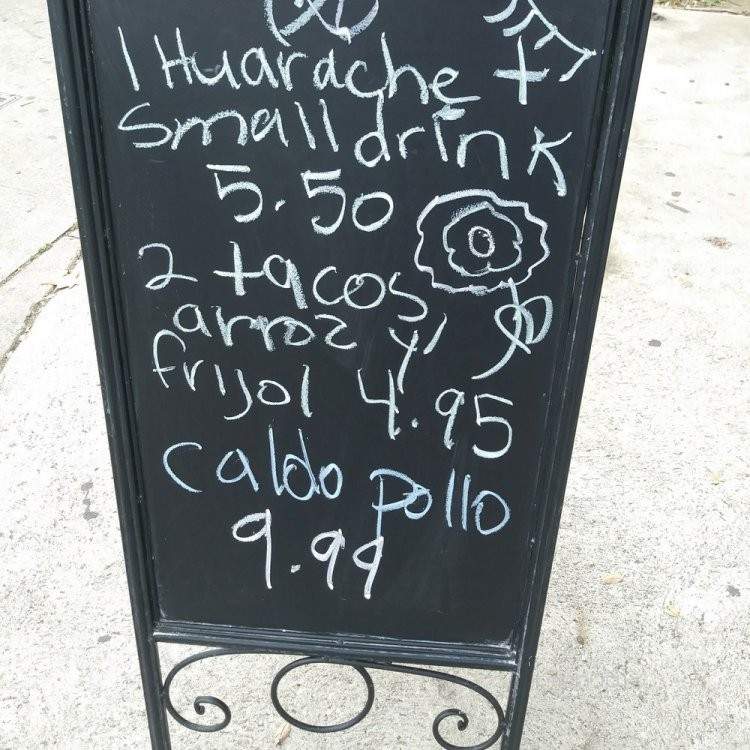 1 Huarache +
small drink
5.50
2 tacos
arroz y
frijol 4.95
caldo pollo
9.99